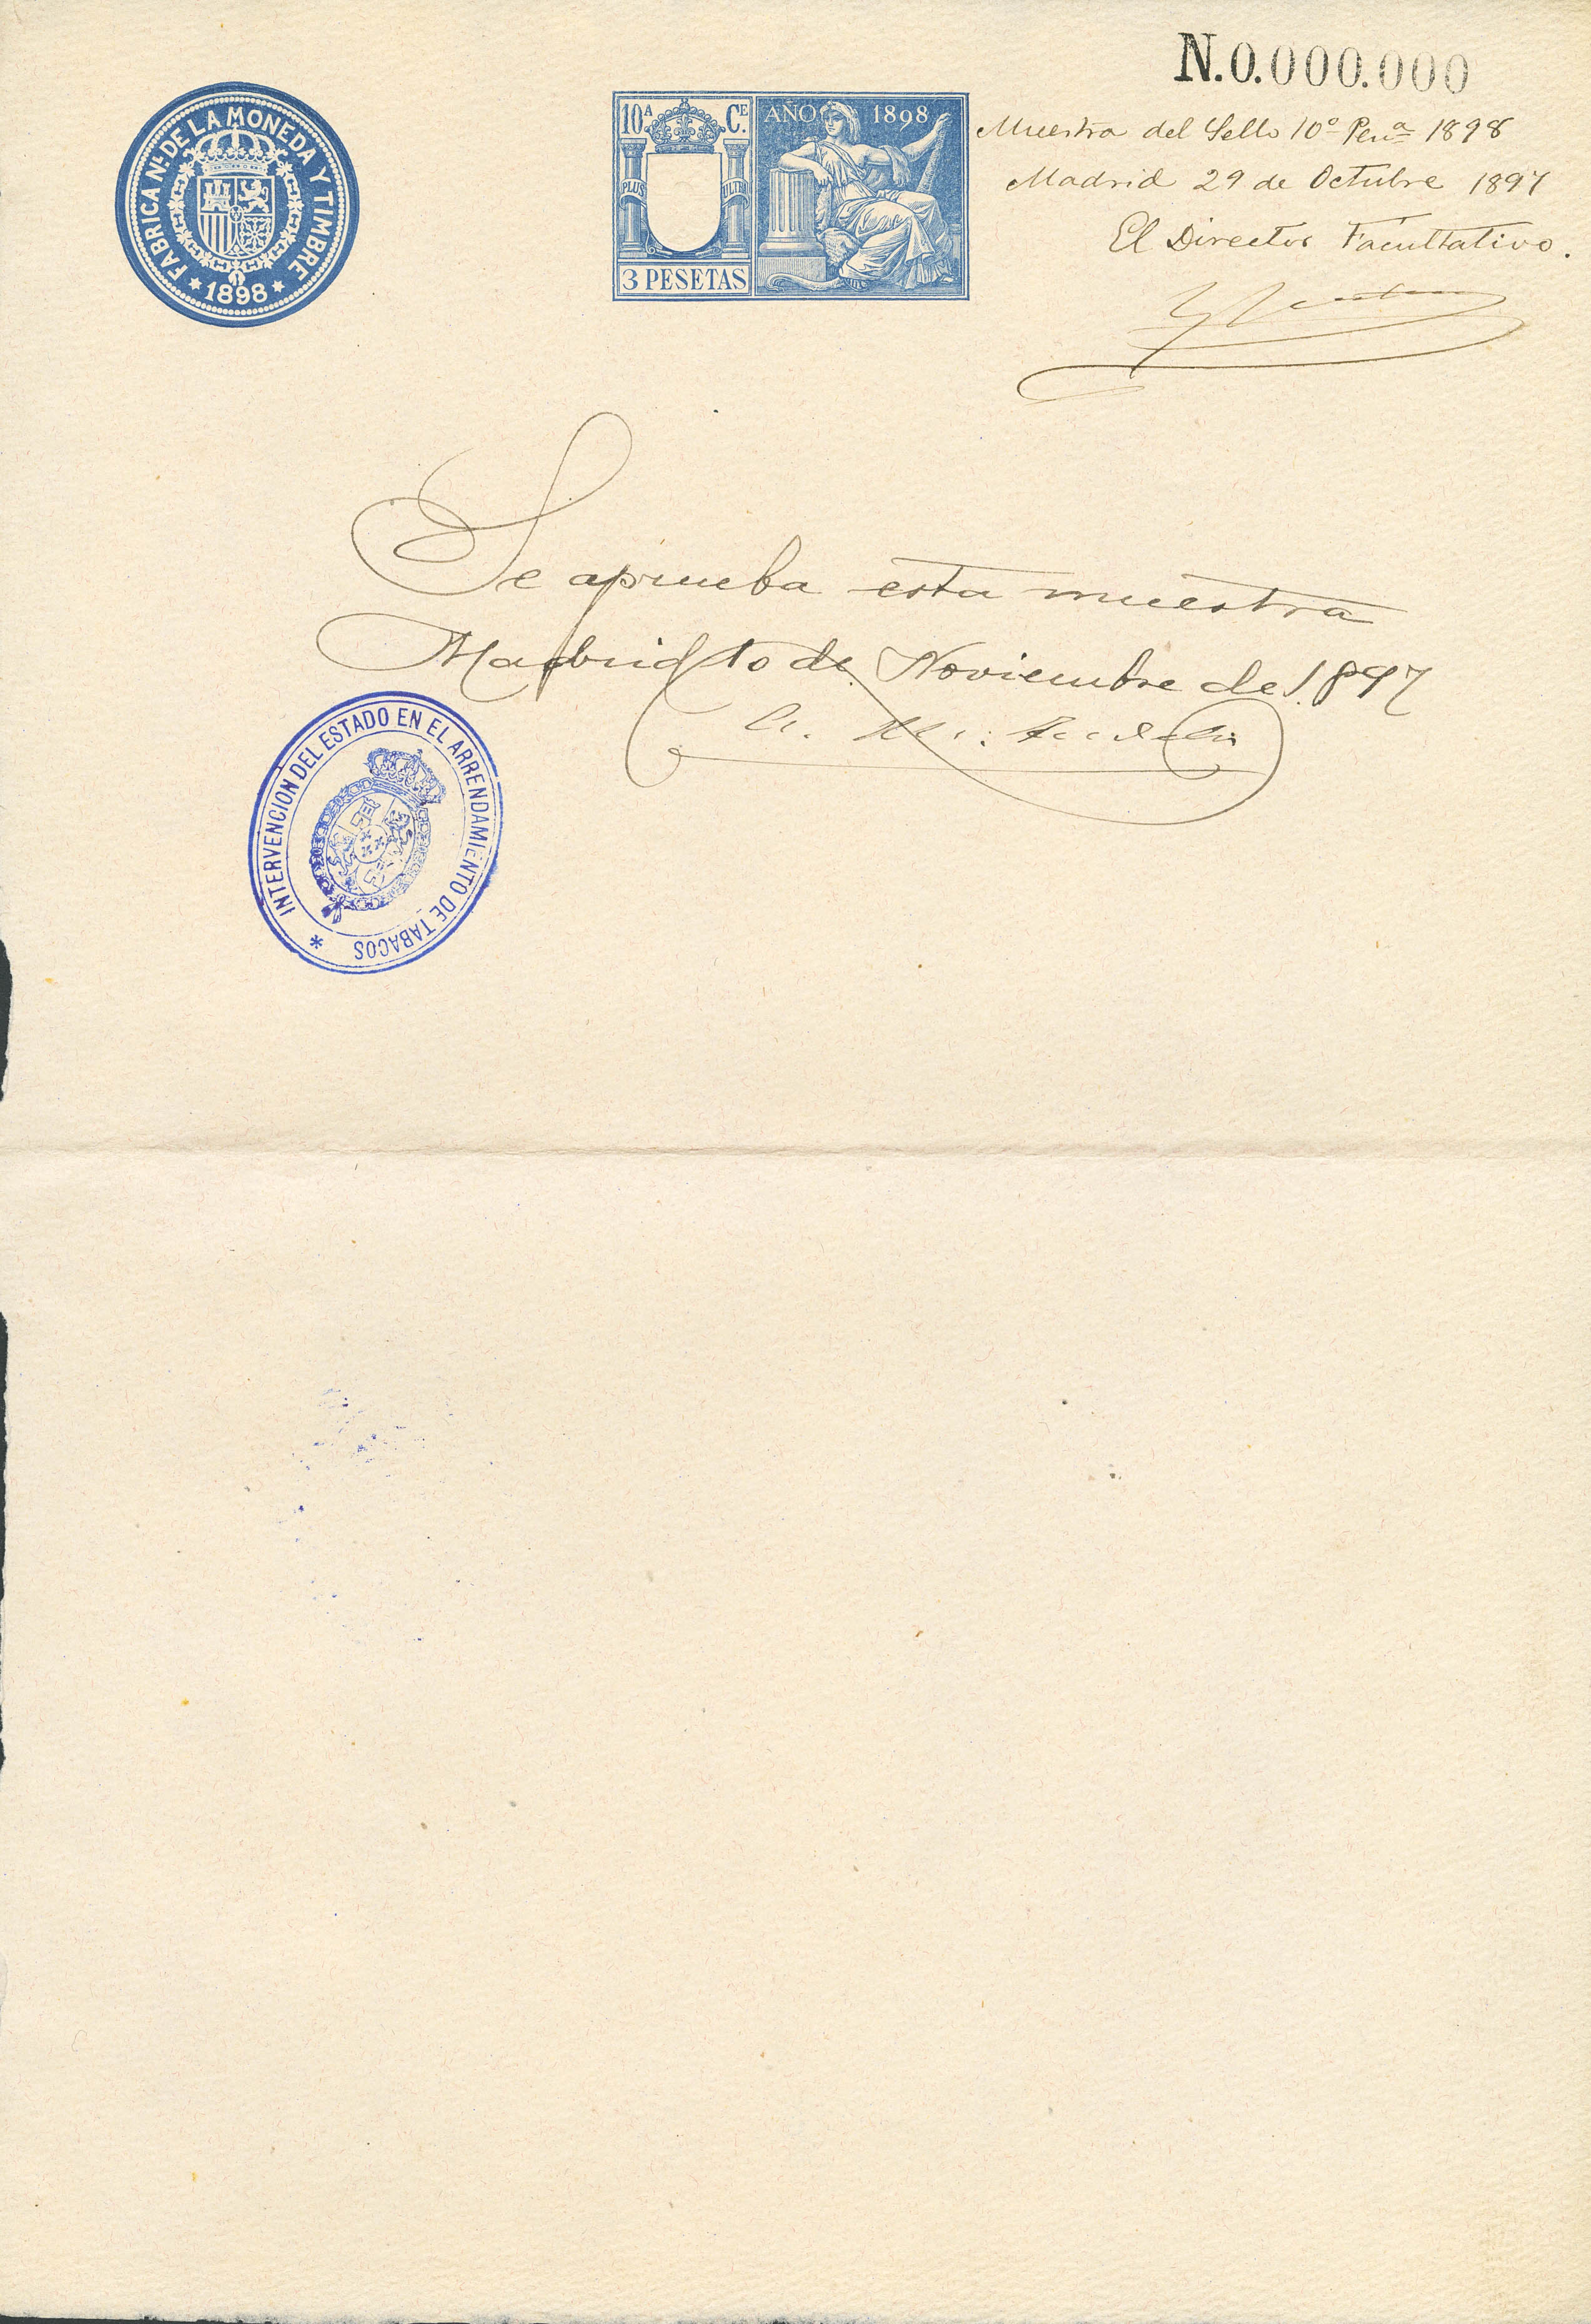 N.0.000.000
FABRICA NL. DE LA MONEDA Y TIMBRE
* 1898 *
10A CE.
AÑO 1898
PLUS ULTRA
3 PESETAS
Muestra del Sello 10º Penª 1898
Madrid 29 de Octubre 1897
El Director Facultativo.
Se aprueba esta muestra
Madrid 10 de Noviembre de 1897
INTERVENCION DEL ESTADO EN EL ARRENDAMIENTO DE TABACOS *